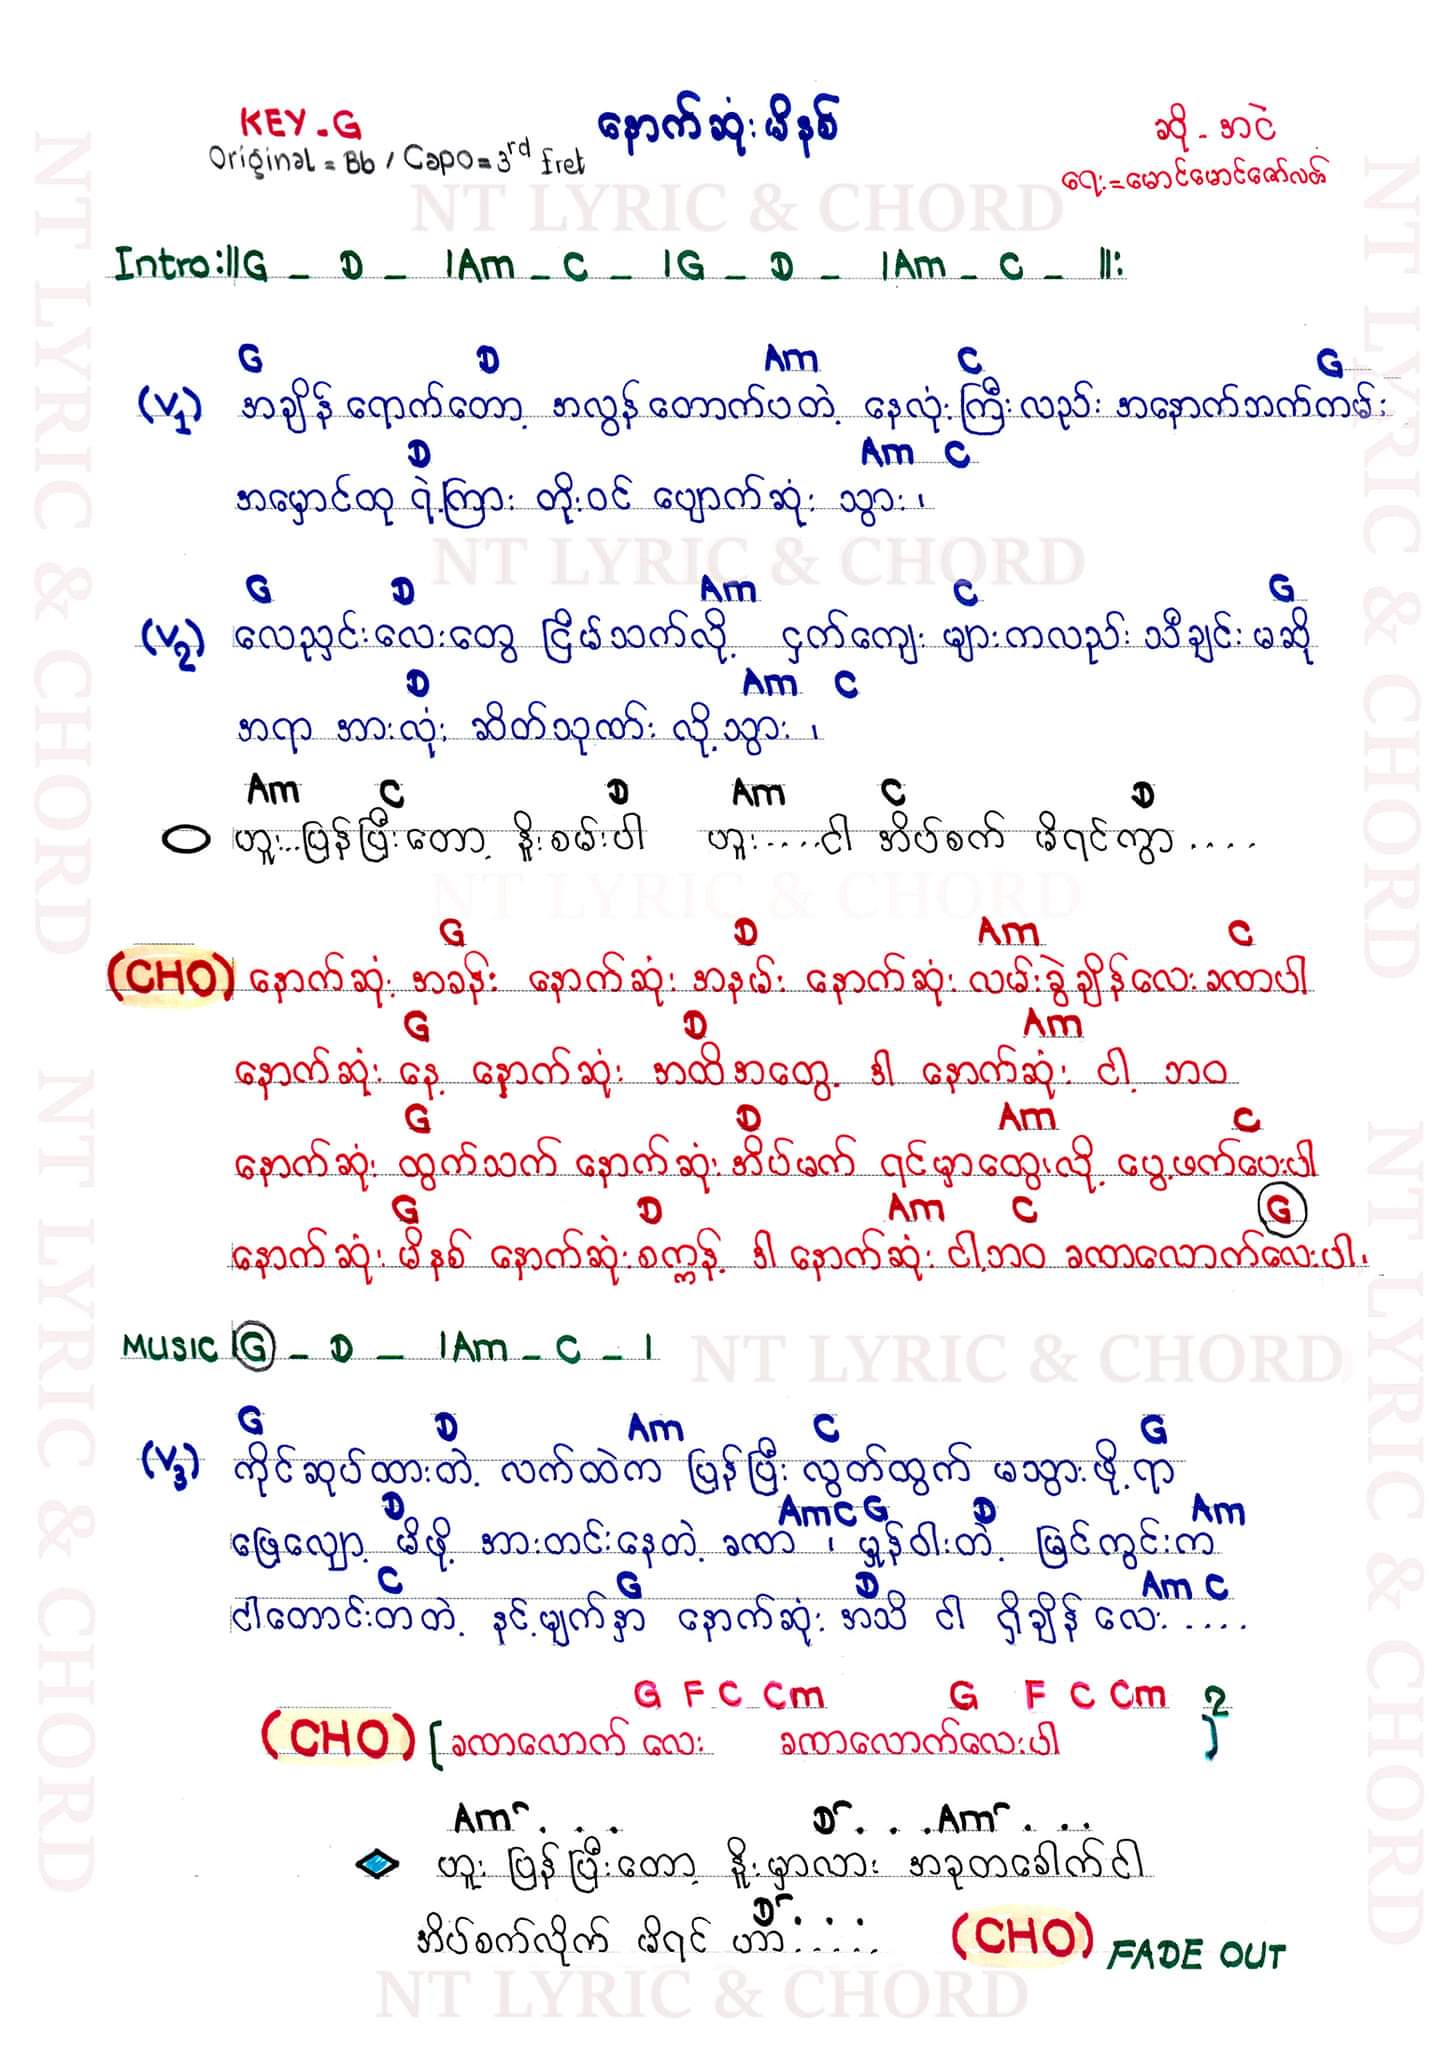 KEY - G
Original = Bb / Capo = 3rd fret
နောက်ဆုံးမိနစ်
ဆို - အငဲ
ရေး = မောင်မောင်ဇော်လတ်
NT LYRIC & CHORD
Intro :||G _ D _ |Am _ C _ |G _ D _ |Am _ C _ ||:
G D Am C G
(V1) အချိန် ရောက်တော့ အလွန် တောက်ပတဲ့ နေလုံးကြီးလည်း အနောက်ဘက်ကမ်း
D Am C
အမှောင်ထု ရဲ့ကြား တိုးဝင် ပျောက်ဆုံး သွား ၊
NT LYRIC & CHORD
G D Am C G
(V2) လေညှင်းလေးတွေ ငြိမ်သက်လို့ ငှက်ကျေး များကလည်း သီချင်း မဆို
D Am C
အရာ အားလုံး ဆိတ်သုဏ်း လို့သွား ၊
Am C D Am C D
ဟူး...ပြန်ပြီးတော့ နိူးစမ်းပါ ဟူး.....ငါ အိပ်စက် မိရင်ကွာ ....
NT LYRIC & CHORD
G D Am C
(CHO) နောက်ဆုံး အခန်း နောက်ဆုံး အနမ်း နောက်ဆုံး လမ်းခွဲချိန်လေးခဏပါ
G D Am
နောက်ဆုံး နေ့ နောက်ဆုံး အထိအတွေ့ ဒါ နောက်ဆုံး ငါ့ ဘဝ
G D Am C
နောက်ဆုံး ထွက်သက် နောက်ဆုံး အိပ်မက် ရင်မှာထွေးလို့ ပွေ့ဖက်ပေးပါ
G D Am C G
နောက်ဆုံး မိနစ် နောက်ဆုံးစက္ကန့် ဒါ နောက်ဆုံး ငါ့ဘဝ ခဏလောက်လေးပါ ၊
MUSIC |G _ D _ |Am _ C _ |
NT LYRIC & CHORD
G D Am C G
(V3) ကိုင်ဆုပ်ထားတဲ့ လက်ထဲက ပြန်ပြီး လွတ်ထွက် မသွားဖို့ရာ
D Am C G D Am
ဖြေလျှော့ မိဖို့ အားတင်းနေတဲ့ ခဏ ၊ မှုန်ဝါးတဲ့ မြင်ကွင်းက
C G D Am C
ငါတောင်းတတဲ့ နင့်မျက်နှာ နောက်ဆုံး အသိ ငါ ရှိချိန် လေး .....
G F C Cm G F C Cm 2
(CHO) [ခဏလောက် လေး ခဏလောက်လေးပါ ]
Am . . . D . . . Am . . .
ဟူး ပြန်ပြီးတော့ နိူးမှာလား အခုတခေါက်ငါ
D . . .
အိပ်စက်လိုက် မိရင် ဟာ .....
(CHO) FADE OUT
NT LYRIC & CHORD
NT LYRIC & CHORD
NT LYRIC & CHORD
NT LYRIC & CHORD
NT LYRIC & CHORD